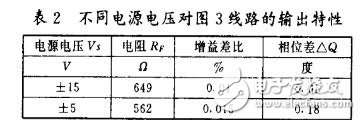 表 2 不同电源电压对图 3 线路的输出特性
电源电压 Vs 电阻 RF 增益差比 相位差△Q
V Ω % 度
±15 649
±5 562 0.18